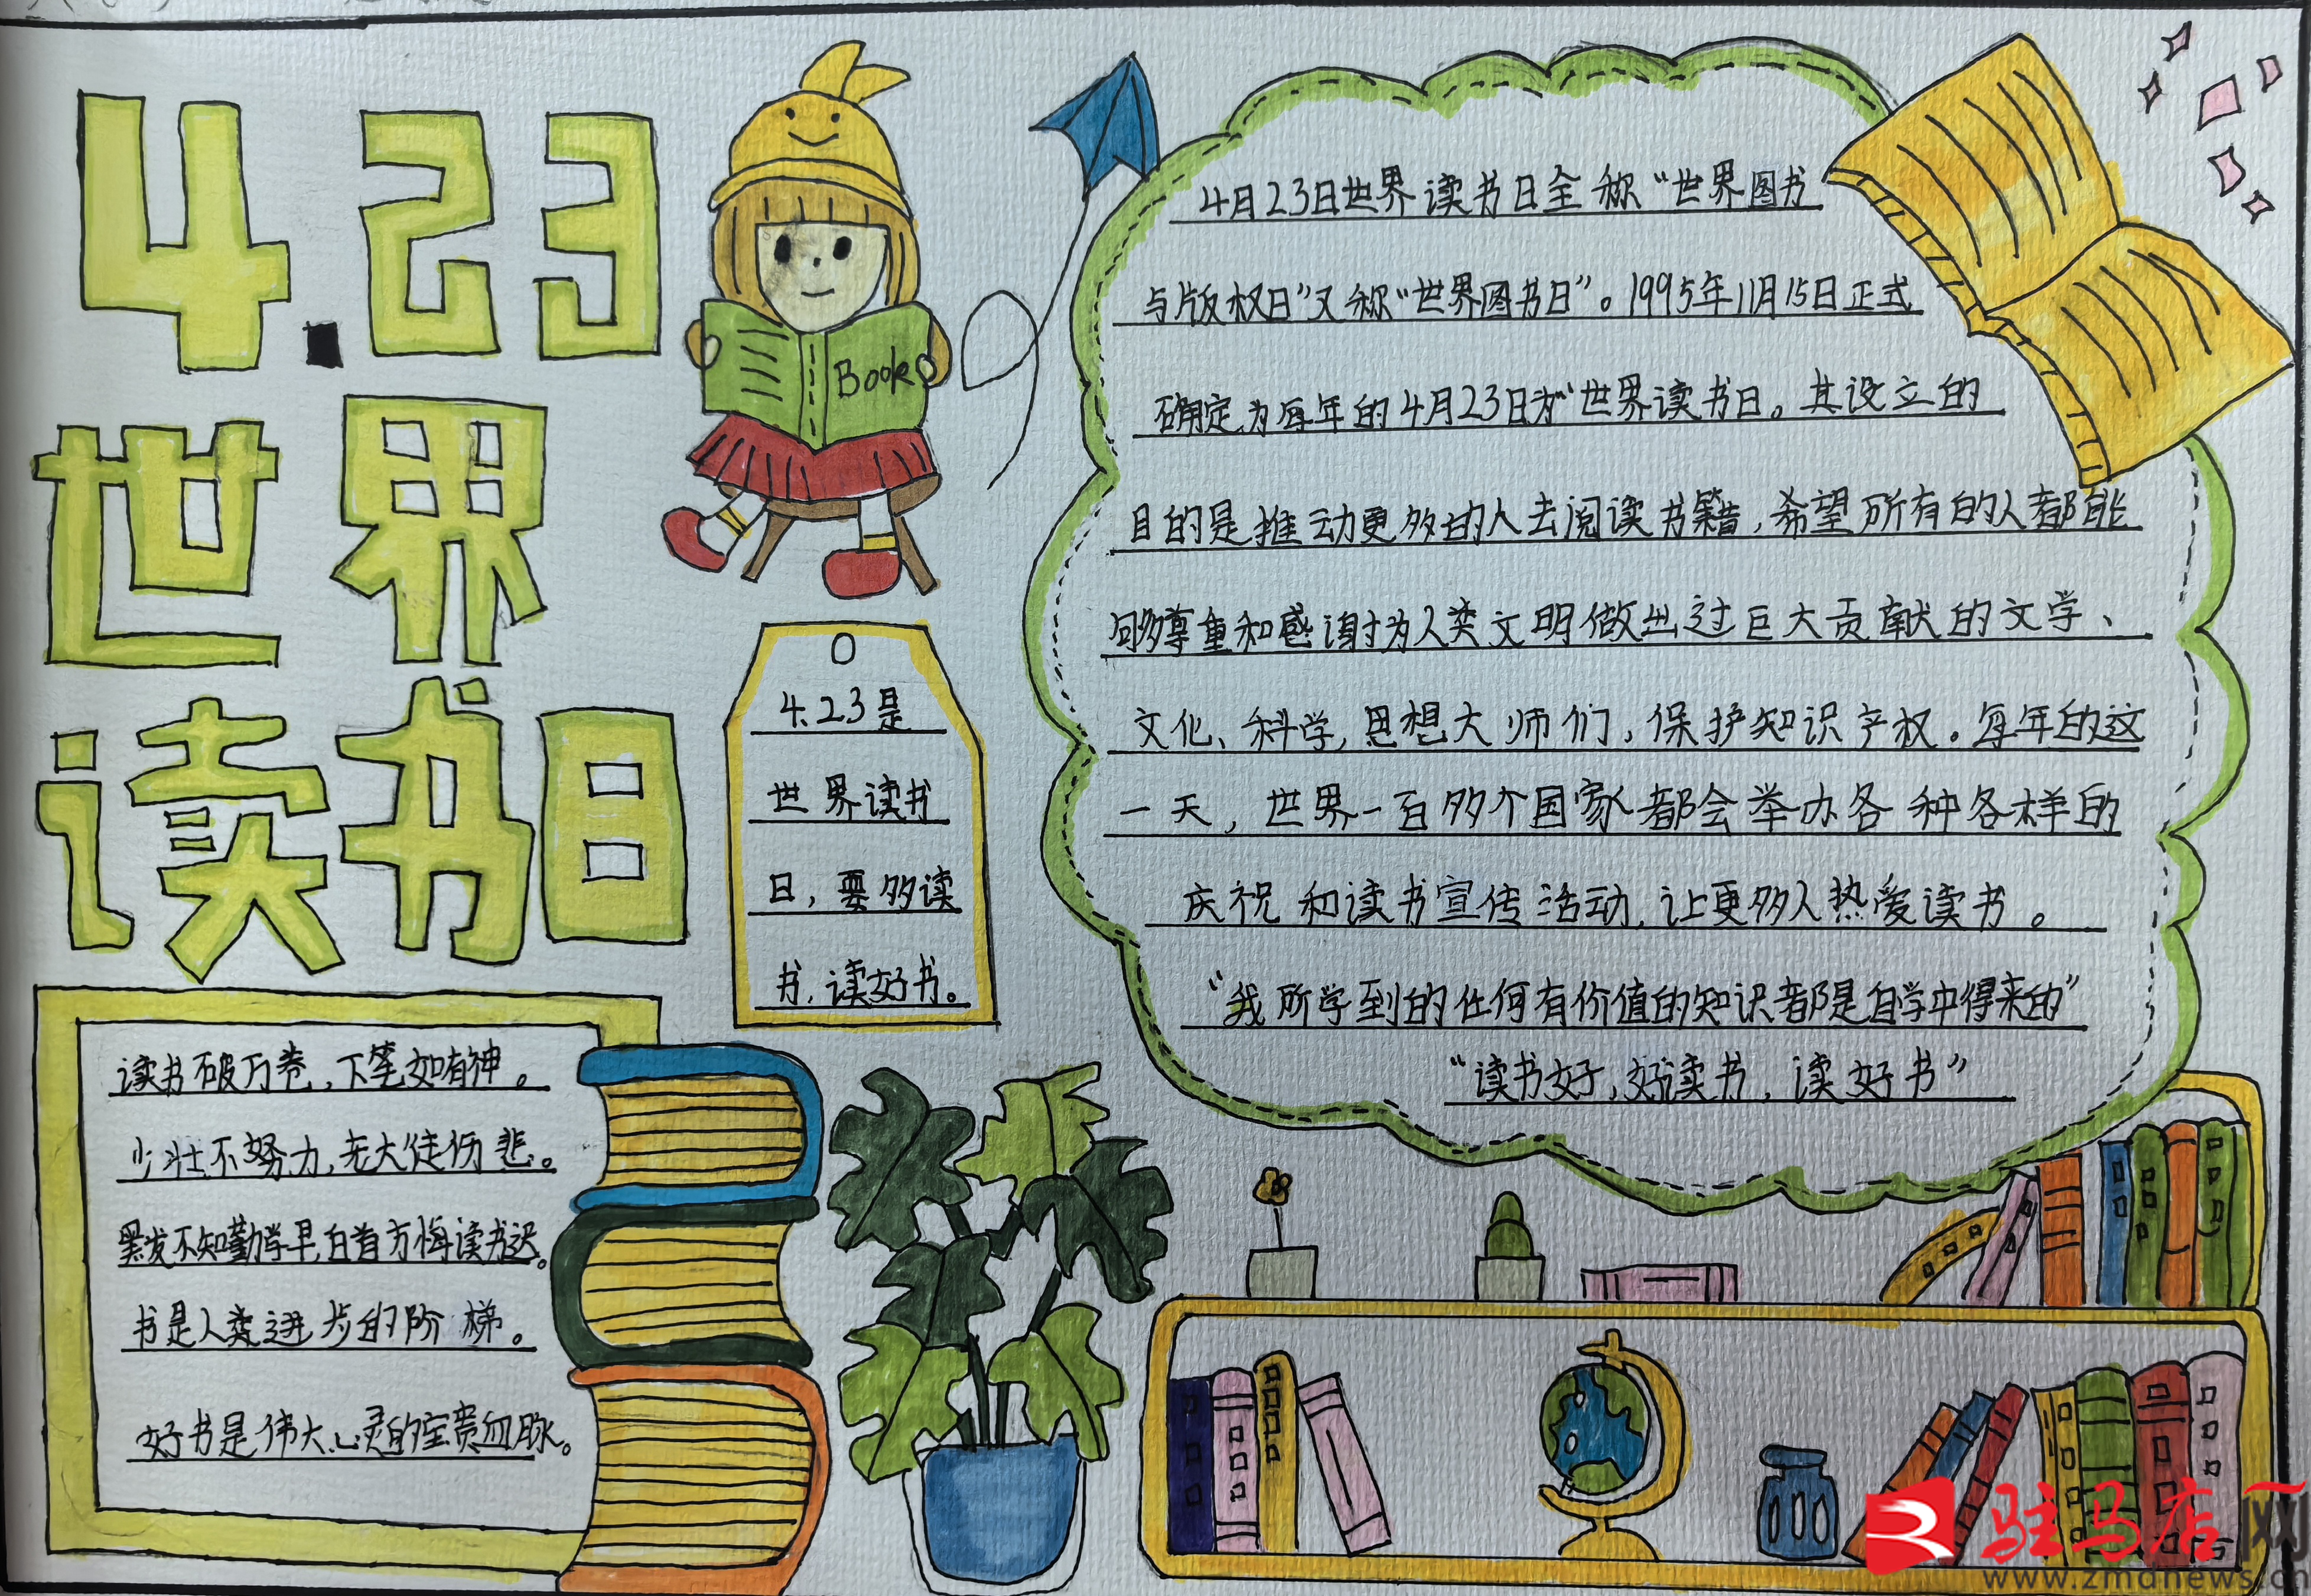 4.23
世界
读书日
Book
4.23是
世界读书
日，要多读
书，读好书。
读书破万卷，下笔如有神。
少壮不努力，老大徒伤悲。
黑发不知勤学早，白首方悔读书迟。
书是人类进步的阶梯。
好书是伟大心灵的宝贵血脉。
4月23日世界读书日全称“世界图书
与版权日”又称“世界图书日”。1995年11月15日正式
确定为每年的4月23日为“世界读书日。其设立的
目的是推动更多的人去阅读书籍，希望所有的人都能
够尊重和感谢为人类文明做出过巨大贡献的文学、
文化、科学，思想大师们，保护知识产权。每年的这
一天，世界一百多个国家都会举办各种各样的
庆祝和读书宣传活动，让更多人热爱读书。
“我所学到的任何有价值的知识都是自学中得来的”
“读书好，好读书，读好书”
驻马店网
www.zmdnews.cn